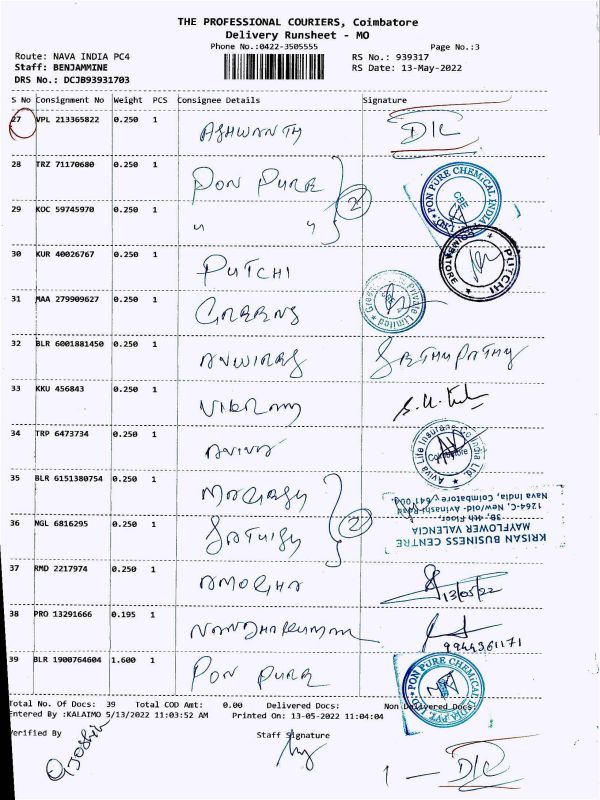 THE PROFESSIONAL COURIERS, Coimbatore
Delivery Runsheet - MO
Phone No.:0422-3505555 Page No.:3
Route: NAVA INDIA PC4 RS No.: 939317
Staff: BENJAMMINE RS Date: 13-May-2022
DRS No.: DCJB93931703
S No Consignment No Weight PCS Consignee Details Signature
27 VPL 213365822 0.250 1 ASHWANTH D/L
28 TRZ 71170680 0.250 1 PON PURE 2 PON PURE CHEMICAL INDIA CBE
29 KOC 59745970 0.250 1 " "
30 KUR 40026767 0.250 1 PUTCHI PUTCHI COIMBATORE
31 MAA 279909627 0.250 1 GREENS Private Limited
32 BLR 6001881450 0.250 1 SATHYPATHY
33 KKU 456843 0.250 1 VIKRAM
34 TRP 6473734 0.250 1 AVIVA Aviva Life Insurance Co India Ltd. Coimbatore
35 BLR 6151380754 0.250 1 2
36 NGL 6816295 0.250 1 SATHISH
KRISAN BUSINESS CENTRE
MAYFLOWER VALENCIA
3B, 4th Floor,
1264-C, New/old- Avinashi Road
Nava India, Coimbatore, 641 004
37 RMD 2217974 0.250 1 AMOGHA 13/05/22
38 PRO 13291666 0.195 1 NANDHAKUMAR 9944361171
39 BLR 1900764604 1.600 1 PON PURE PON PURE CHEMICAL INDIA PVT. LTD.
Total No. Of Docs: 39 Total COD Amt: 0.00 Delivered Docs: Non Delivered Docs:
Entered By :KALAIMO 5/13/2022 11:03:52 AM Printed On: 13-05-2022 11:04:04
Verified By Staff Signature
1 — D/L